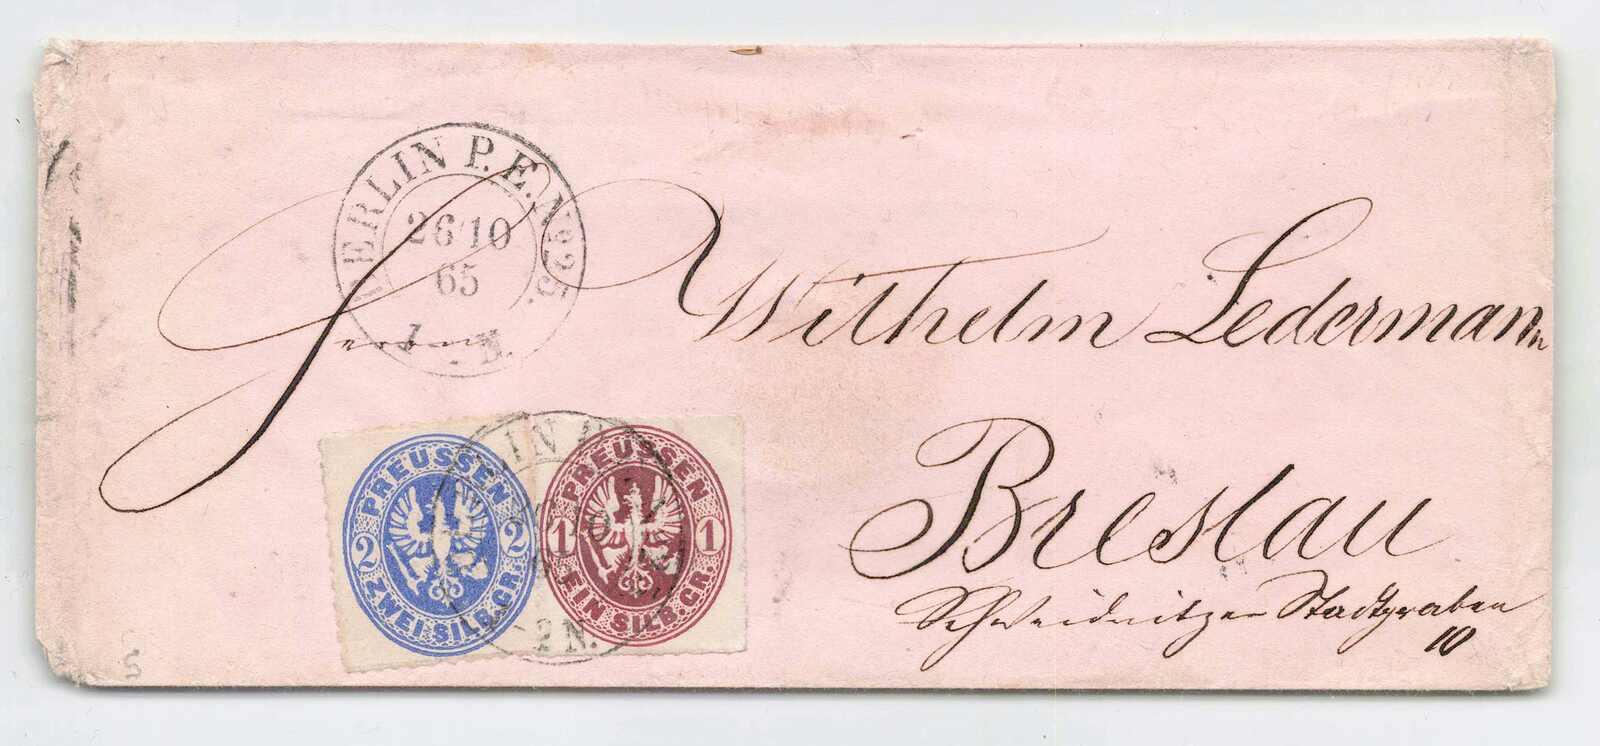 BERLIN P.E. No 25.
26 10
65
Herrn
Wilhelm Ledermann
Breslau
Schweidnitzer Stadtgraben
10
PREUSSEN
2 2
ZWEI SILB. GR.
PREUSSEN
1 1
EIN SILB. GR.
LIN P.
2 N.
5